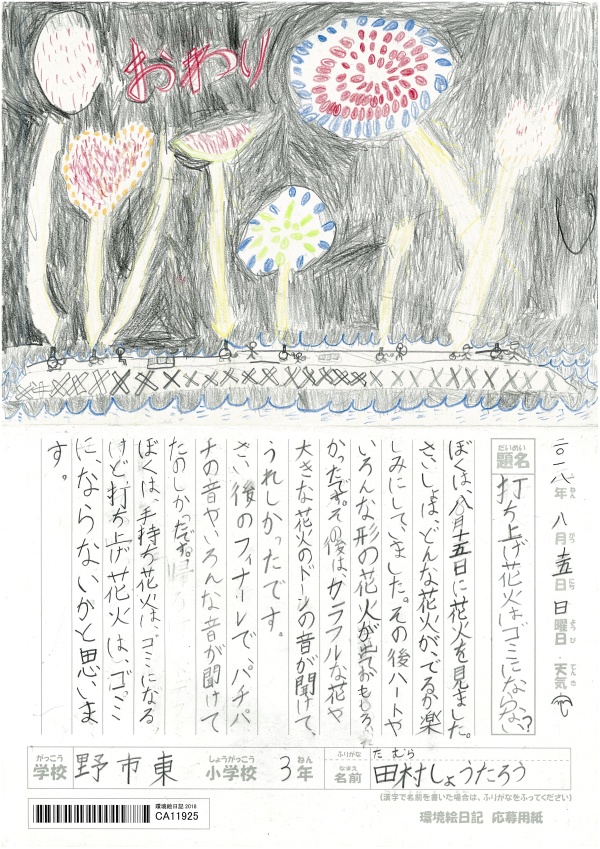 おわり
二〇一八年 八月 十五日 日曜日 天気
ねん がつ にち ようび てんき
だいめい
題名 打ち上げ花火はゴミにならない?
ぼくは、八月十五日に花火を見ました。
さいしょは、どんな花火が、でるか楽
しみにしていました。その後ハートや
いろんな形の花火が出ておもしろ
かったです。その後は、カラフルな花や
大きな花火のドンの音が聞けて、
うれしかったです。
さい後のフィナーレで、パチパ
チの音やいろんな音が聞けて
たのしかったです。
ぼくは、手持ち花火は、ゴミになる
けど打ち上げ花火は、ゴミ
に、ならないかと思いま
す。
がっこう しょうがっこう ねん ふりがな た むら
学校 野市東 小学校 3年 なまえ 名前 田村しょうたろう
(漢字で名前を書いた場合は、ふりがなをふってください)
環境絵日記2018
CA11925
環境絵日記 応募用紙